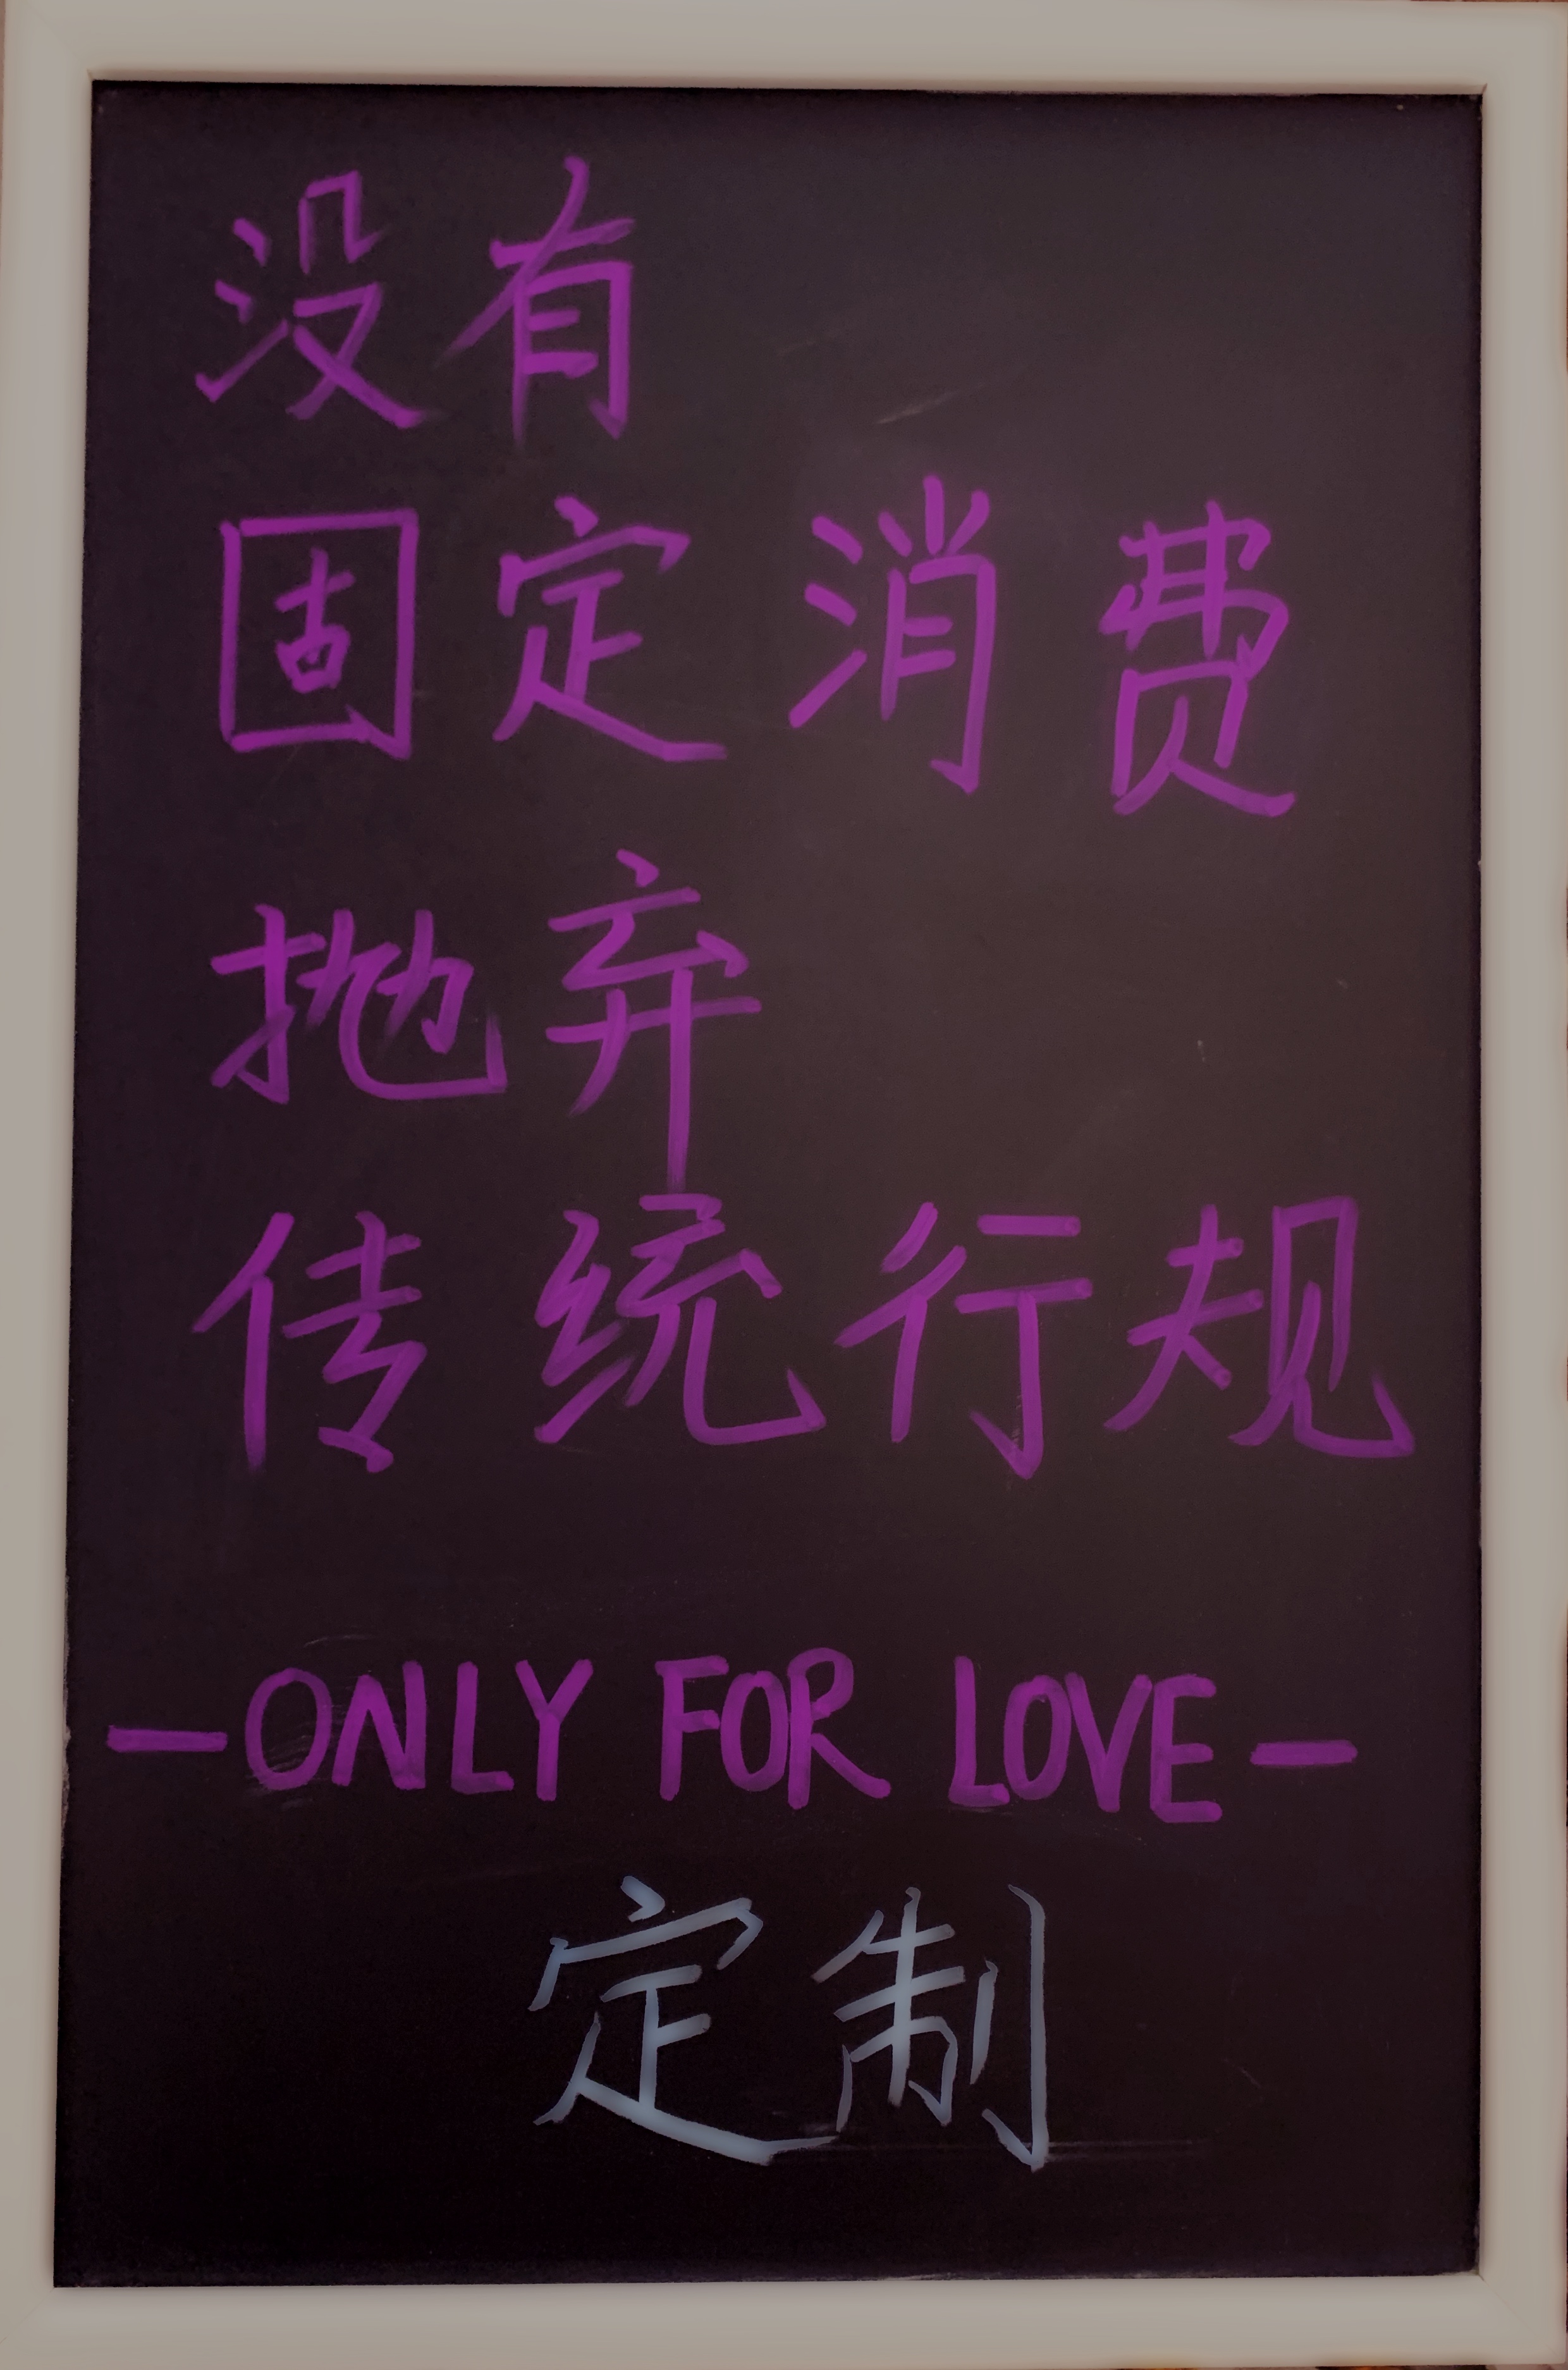 没有
固定消费
抛弃
传统行规
—ONLY FOR LOVE—
定制